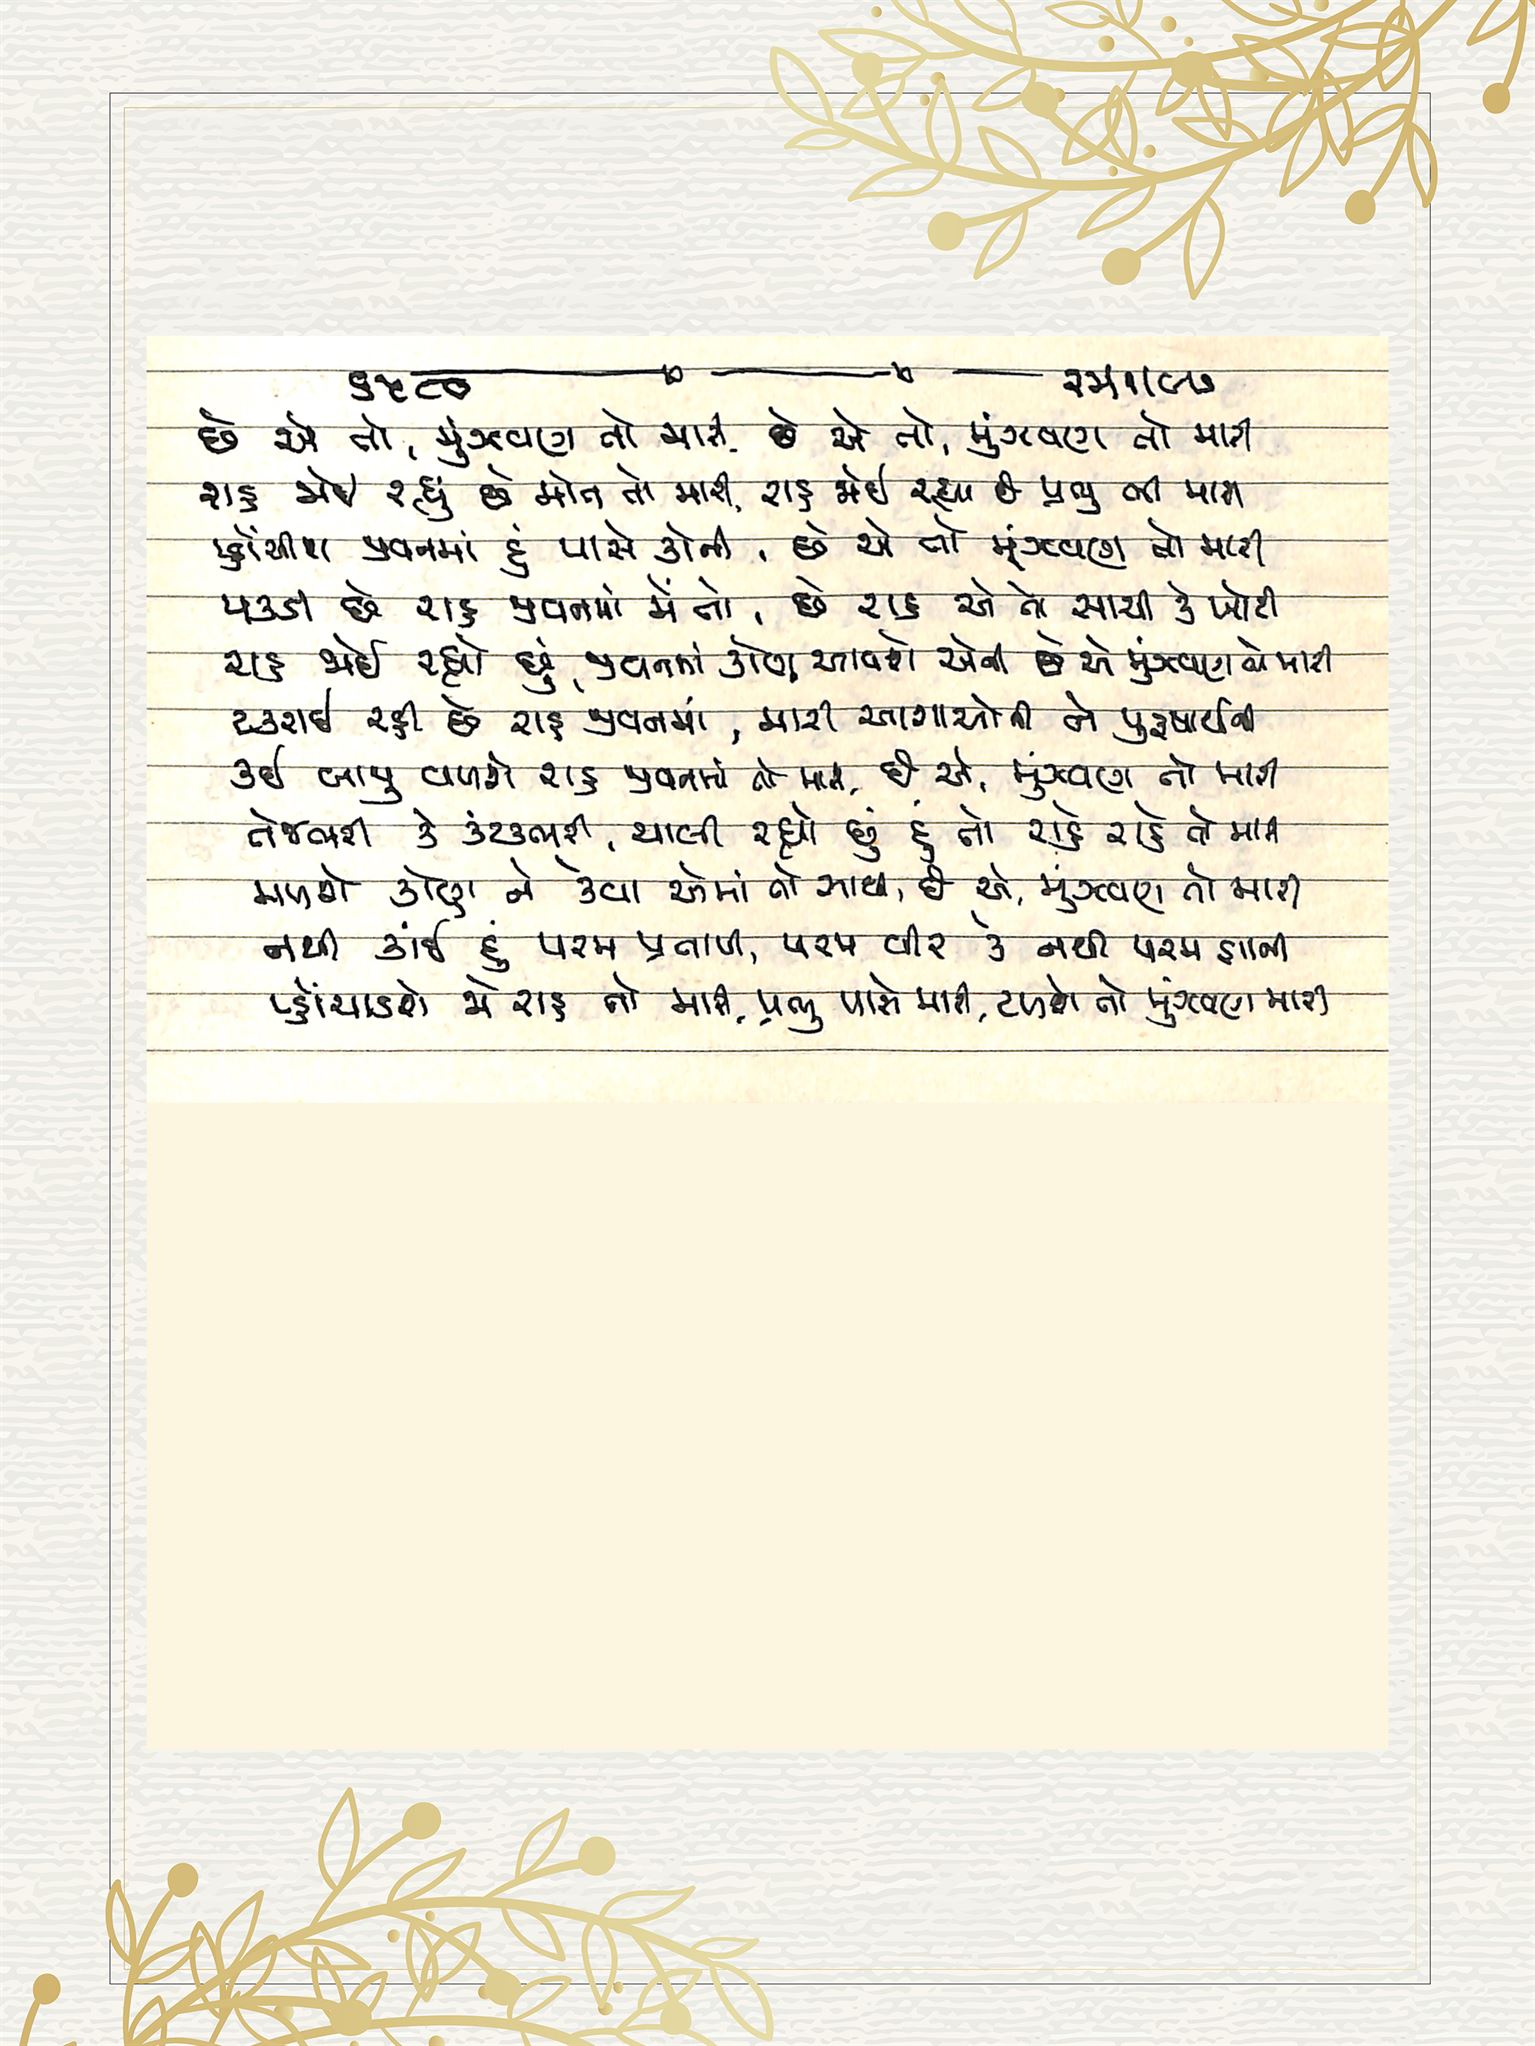 ૬૫૮૦ ૨૩મ૧૯૯૭
છે એ તો, મુંઝવણ તો મારી, છે એ તો, મુંઝવણ તો મારી
રાહ જોઈ રહ્યું છે મોત તો મારી, રાહ જોઈ રહ્યા છે પ્રભુ બી મારી
પ્હોંચીશ જીવનમાં હું પાસે કોની, છે એ તો મૂંઝવણ તો મારી
પકડી છે રાહ જીવનમાં મેં તો, છે રાહ એ તો સાચી કે ખોટી
રાહ જોઈ રહ્યો છું, જીવનમાં કોણ આવશે એની છે એ મુંઝવણ તો મારી
ટકરાઈ રહી છે રાહ જીવનમાં, મારી આશાઓની ને પુરૂષાર્થની
કઈ બાજુ વળશે રાહ જીવનમાં તો મારી, છે એ, મુંઝવણ તો મારી
તેજભરી કે કંટકભરી, ચાલી રહ્યો છું હું તો રાહે રાહે તો મારી
મળશે કોણ ને કેવા એમાં તો સાથી, છે એ, મુંઝવણ તો મારી
નથી કાંઈ હું પરમ પ્રતાપી, પરમ વીર કે નથી પરમ જ્ઞાની
પ્હોંચાડશે જે રાહ તો મારી, પ્રભુ પાસે મારી, ટળશે તો મુંઝવણ મારી